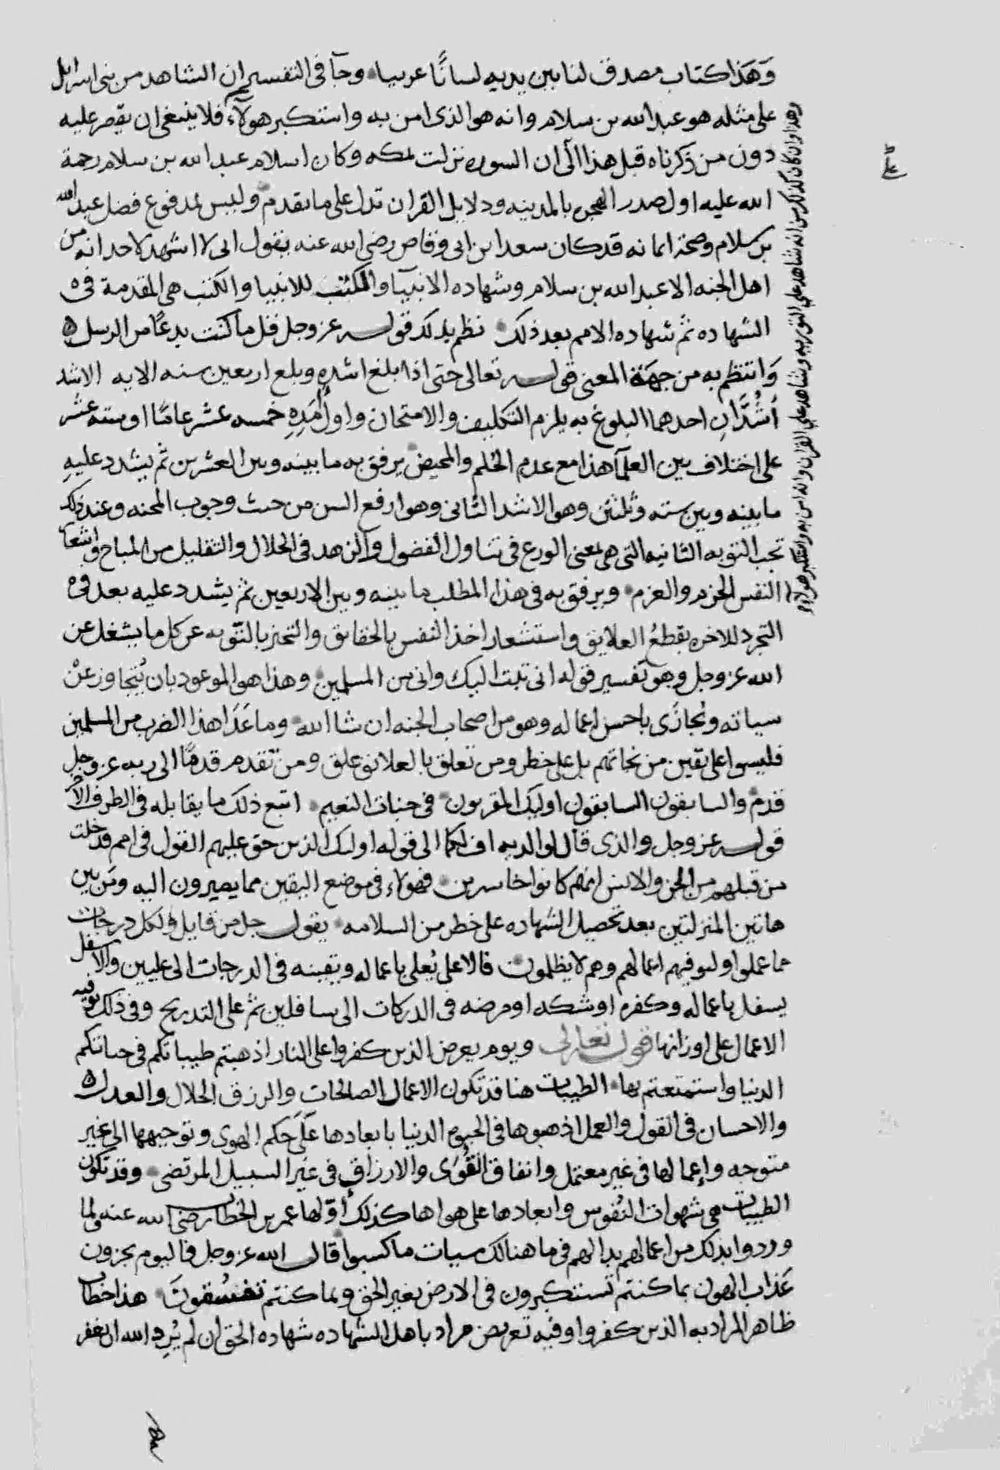 وهذا كتاب مصدق لما بين يديه لسانا عربيا وجا في التفسير ان الشاهد من بني اسرايل
على مثله هو عبد الله بن سلام وانه هو الذي امن به واستكبر هولآء فلا ينبغي ان يقصر عليه
دون من ذكرناه قبل هذا الى ان السوره نزلت بمكه وكان اسلام عبد الله بن سلام رحمة
الله عليه اول صدر الهجره بالمدينه ودلايل القران تدل على ما تقدم وليس بمدفوع فضل عبد الله
بن سلام وصحة ايمانه قد كان سعد ابن ابي وقاص رضي الله عنه يقول اني لا اشهد لاحد انه من
اهل الجنه الا عبد الله بن سلام وشهاده الانبيآء والكتب للانبيا والكتب هي المقدمة في
الشهاده ثم شهاده الامم بعد ذلك نظم بذلك قوله عز وجل قل ما كنت بدعا من الرسل
وانتظم به من جهة المعنى قوله تعالى حتى اذا بلغ اشده وبلغ اربعين سنه الايه الاشد
أشدان احدهما البلوغ به يلزم التكليف والامتحان واول أمده خمسه عشر عاما او سته عشر
على اختلاف بين العلمآ هذا مع عدم الحلم والمحيض يرفق به ما بينه وبين العشرين ثم يشدد عليه
ما بينه وبين سته وثلثين وهو الاشد الثاني وهو ارفع السن من حيث وجوب المحنه وعند ذلك
تجب التوبه الثانيه التي هي بمعنى الورع في تناول الفضول والزهد في الحلال والتقليل من المباح واشعا
النفس الحزم والعزم ويرفق به في هذا المطلب ما بينه وبين الاربعين ثم يشدد عليه بعد في
التجرد للاخره بقطع العلايق واستشعار اخذ النفس بالحقايق والتحيز بالتوبه عن كل ما يشغل عن
الله عز وجل وهو تفسير قوله اني تبت اليك واني من المسلمين وهذا هو الموعود بان يتجاوز عن
سياته ويجازى باحسن اعماله وهو من اصحاب الجنه ان شا الله وما عدا هذا الضرب من المسلمين
فليسوا على يقين من نجاتهم بل على خطر ومن تعلق بالعلايق علق ومن تقدم قدما الى ربه عز وجل
قدم والسابقون السابقون اوليك المقربون في جنات النعيم اتبع ذلك ما يقابله في الطرف الاخر
قوله عز وجل والذي قال لوالديه اف لكما الى قوله اوليك الذين حق عليهم القول في امم قد خلت
من قبلهم من الجن والانس انهم كانوا خاسرين فهولاء في موضع اليقين مما يصيرون اليه ومن بين
هاتين المنزلتين بعد تحصيل الشهاده على خطر من السلامه يقول جل من قايل ولكل درجات
مما عملوا وليوفيهم اعمالهم وهم لا يظلمون فالاعلى يعلى باعماله ويقينه في الدرجات الى عليين والاسفل
يسفل باعماله وكفره او شكه او مرضه في الدركات الى سافلين ثم على التدريج وفي ذلك توفيه
الاعمال على اوزانها قوله تعالى ويوم يعرض الذين كفروا على النار اذهبتم طيباتكم في حياتكم
الدنيا واستمتعتم بها الطيبات هنا قد تكون الاعمال الصالحات والرزق الحلال والعدل
والاحسان في القول والعمل اذهبوها في الحيوه الدنيا بابعادها على حكم الهوى وتوجيهها الى غير
متوجه وإعمالها في غير معتمل وانفاق القوى والارزاق في غير السبيل المرتضى وقد تكون
الطيبات هي شهوات النفوس وابعادها على هواها كذلك أوّلها عمر بن الخطاب رضي الله عنه ولما
وردوا بذلك من اعمالهم بدا لهم في ما هنالك سيات ما كسبوا قال الله عز وجل فاليوم تجزون
عذاب الهون بما كنتم تستكبرون في الارض بغير الحق وبما كنتم تفسقون هذا خطاب
ظاهر المراد به الذين كفروا وفيه تعريض مراد باهل الشهاده شهاده الحق ان لم يرد الله ان يغفر